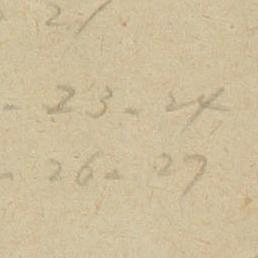 21
- 23 - 24
- 26 - 27